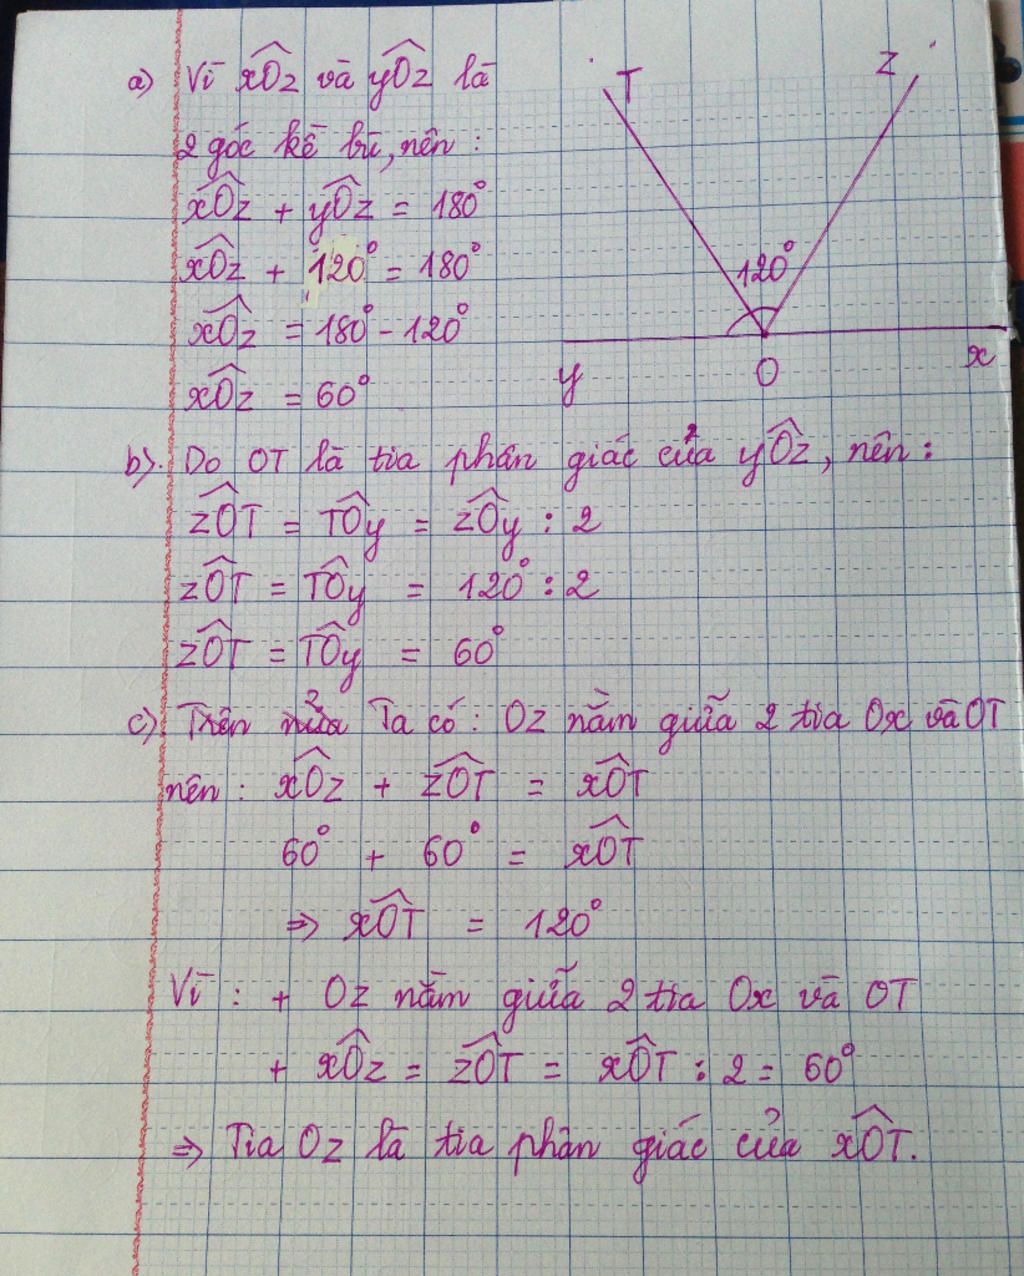 a) Vì xÔz và yÔz là
2 góc kề bù, nên :
xÔz + yÔz = 180°
xÔz + 120° = 180°
xÔz = 180° - 120°
xÔz = 60°
T
Z
120°
y
O
x
b). Do OT là tia phân giác của yÔz, nên :
zÔT = TÔy = zÔy : 2
zÔT = TÔy = 120° : 2
zÔT = TÔy = 60°
c) Trên nửa Ta có : Oz nằm giữa 2 tia Ox và OT
nên : xÔz + zÔT = xÔT
60° + 60° = xÔT
⇒ xÔT = 120°
Vì : + Oz nằm giữa 2 tia Ox và OT
+ xÔz = zÔT = xÔT : 2 = 60°
⇒ Tia Oz là tia phân giác của xÔT.